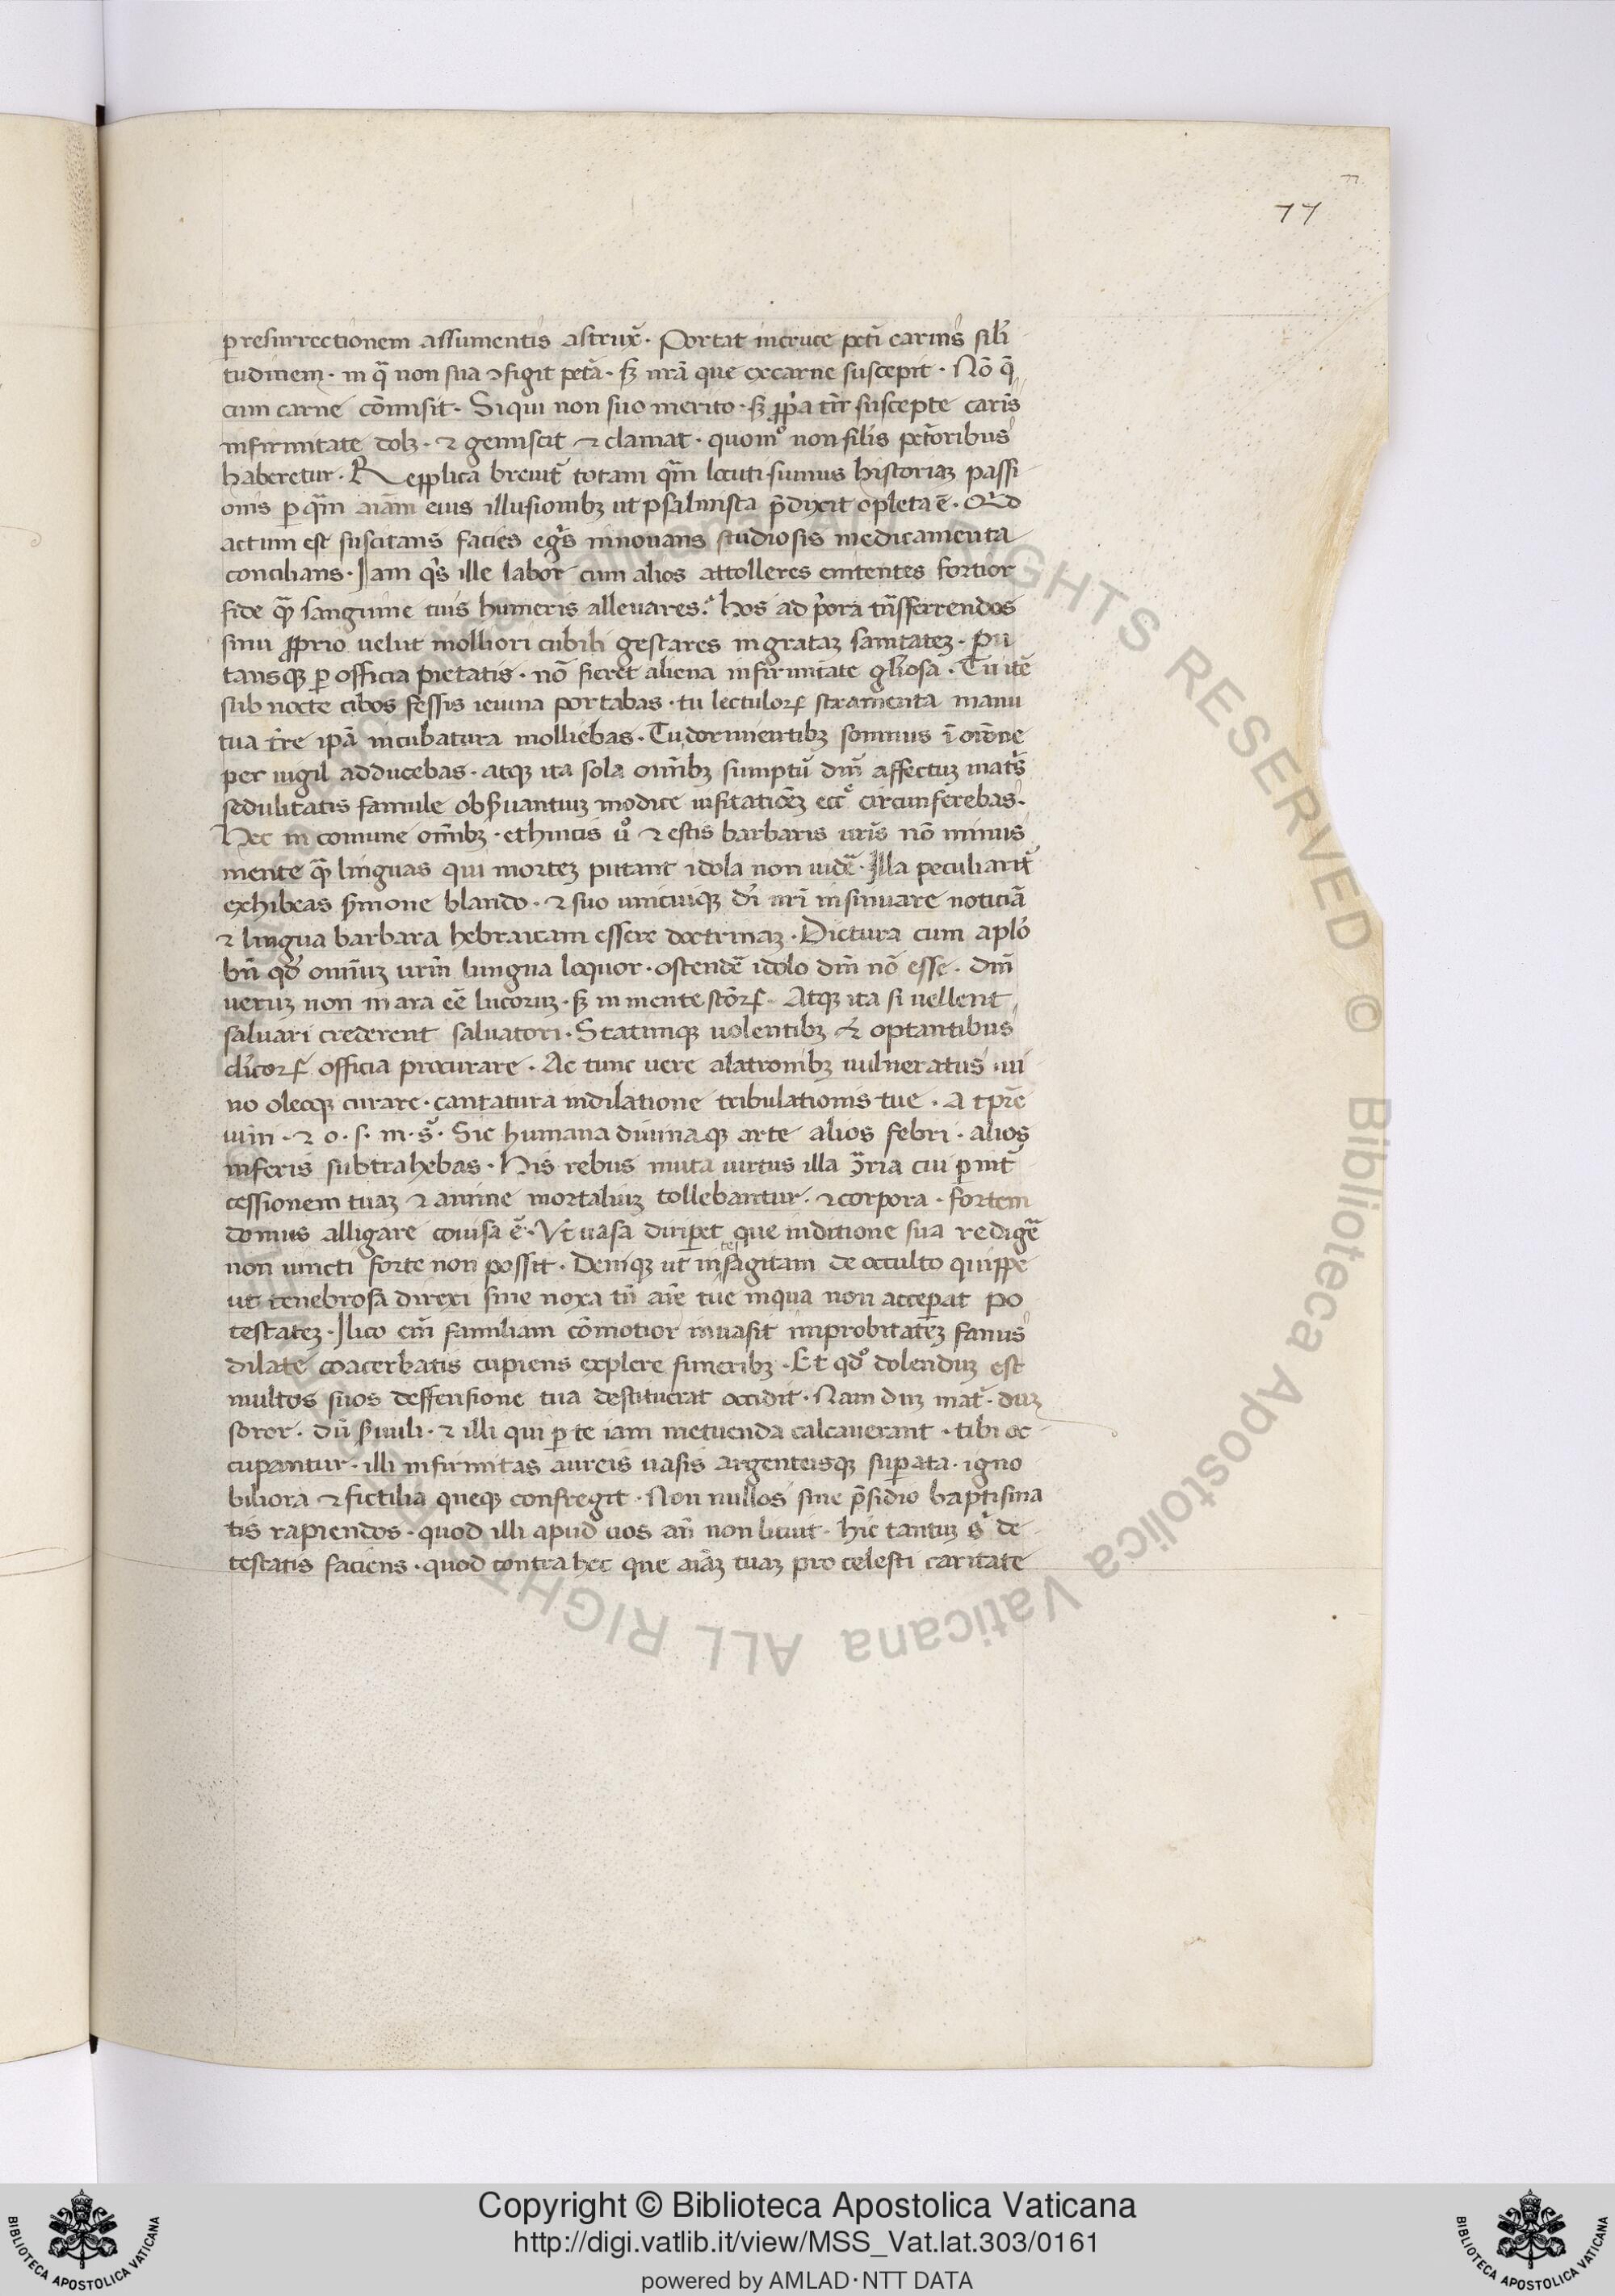 77
77
p resurrectionem assumentis astrux̃. Portat incruce pctĩ carnis sili
tudinem. in q̃ non sua ↄfigit pctã. sz nr̃ã que excarne suscepit. Nõ q̃
cum carne cõmisit. Siqui non suo merito. sz ꝓp̃a tñr suscepte carĩs
infirmitate dolz. ⁊ gemiscit ⁊ clamat. quomͦ non silis pct̃oribus
haberetur. Repplica breuit̃ totam qm̃ locuti sumus historiaz passi
onis p qm̃ aiãm eius illusionibz ut psalmista p̃dixit ↄpleta ẽ. Qd
actum est suscitans facies egs̃ innouans studiosis medicamenta
concilians. Iam qs̃ ille labor cum alios attolleres enitentes fortior
fide q̃ sanguine tuis humeris alleuares. hos ad p̃ora tñsferrendos
sinu ꝓprio uelut molliori cubili gestares ingrataz sanitatez. Pu
tansqz p officia pietatis. nõ fieret aliena infirmitate gl̃iosa. Tu itẽ
sub nocte cibos fessis ieiuna portabas. tu lectuloꝝ stramenta manu
tua tr̃e ipã incubatura molliebas. Tu dormientibz somnus ĩ or̃one
per uigil adducebas. atqz ita sola omĩbz sumptũ dm̃ affectuz matr̃s
sedulitatis famule obs̃uantiuz modice uisitatiõez eccͤ circunferebas.
Hec in comune omĩbz. ethnicis uͦ ⁊ estis barbaris uris̃ nõ minus
mente q̃ linguas qui mortez putant idola non uidẽ. Illa peculiarit̃
exhibeas s̃mone blando. ⁊ suo unicuiqz dĩ nr̃i insinuare noticiã
⁊ lingua barbara hebraicam essere doctrinaz. Dictura cum aplõ
bñ qđ omniuz urm̃ lingua loquor. ostendẽ idolo dm̃ nõ esse. dm̃
ueruz non in ara eẽ lucoruz. sz in mente sc̃oꝝ. Atqz ita si uellent
saluari crederent saluatori. Statimqz uolentibz & optantibus
clicoꝝ officia procurare. Ac tunc uere alatronibz uulneratus ui
no oleoqz curare. cantatura indilatione tribulationis tue. A tpr̃e
uin. ⁊ o. s. m. s̃. Sic humana diuinaqz arte alios febri. alios
inferis subtrahebas. His rebus inuita uirtus illa ↄ̃ria cui p int̃
cessionem tuaz ⁊ anime mortaliuz tollebantur. ⁊corpora. fortem
domus alligare couisa ẽ. Vt uasa diripet que inditione sua redigẽ
non uincti forte non possit. Deniqz ut in te sagitam de occulto quippe
ut tenebrosa direxi sine noxa tñ aĩe tue inqua non acceperat po
testatez. Ilico em̃ familiam cõmotior inuasit improbitatez fanus
dilate coacerbatis cupiens explere funeribz. Et qđ dolenduz est
multos suos deffensione tua destituerat occidit. Nam duz mat̃. duz
soror. dũ s̃uuli. ⁊ illi qui p te iam metuenda calcauerant. tibi oc
cupantur. illi infirmitas aureis uasis argenteisqz supata. igno
biliora ⁊ fictilia queqz confregit. Non nullos sine p̃sidio baptisma
tis rapiendos. quod illi apud uos añ non licuit. hic tantuz s̃ de
testatis faciens. quod contra hec que aiãz tuaz pro celesti caritate
Copyright © Biblioteca Apostolica Vaticana
http://digi.vatlib.it/view/MSS_Vat.lat.303/0161
powered by AMLAD·NTT DATA